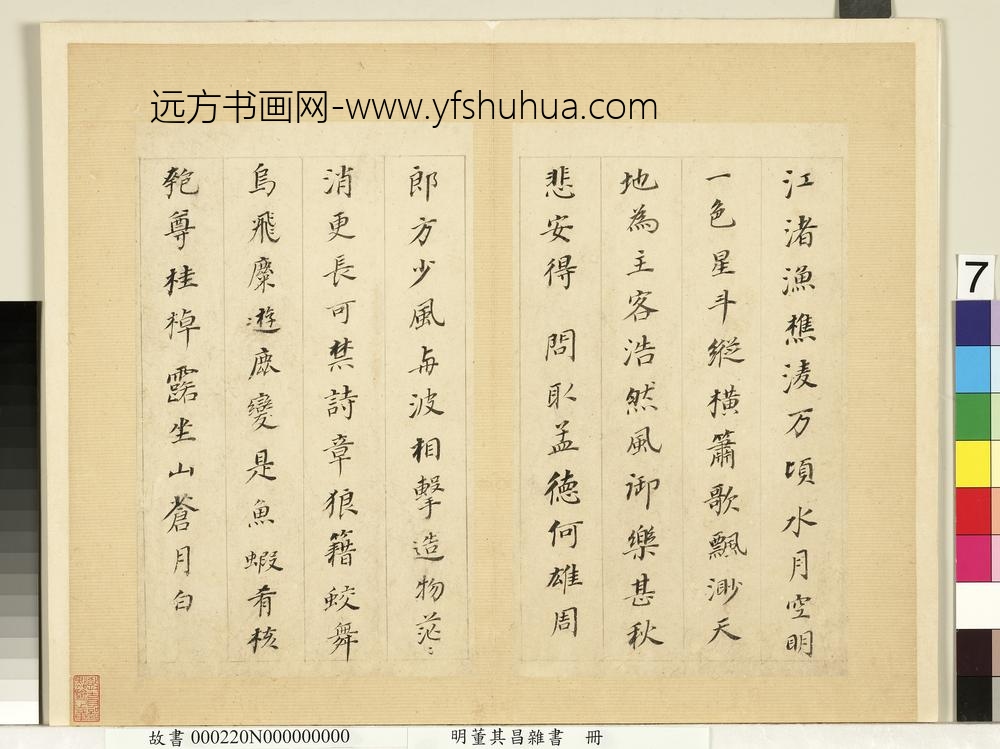 远方书画网-www.yfshuhua.com
江渚漁樵淩万頃水月空明
一色星斗縱橫簫歌飄渺天
地為主客浩然風御樂甚秋
悲安得 問取孟德何雄周
郎方少風與波相擊造物茫〻
消更長可禁詩章狼籍蛟舞
烏飛麋遊鹿變是魚蝦肴核
匏尊桂棹露坐山蒼月白
7
故書 000220N000000000
明董其昌雜書 冊